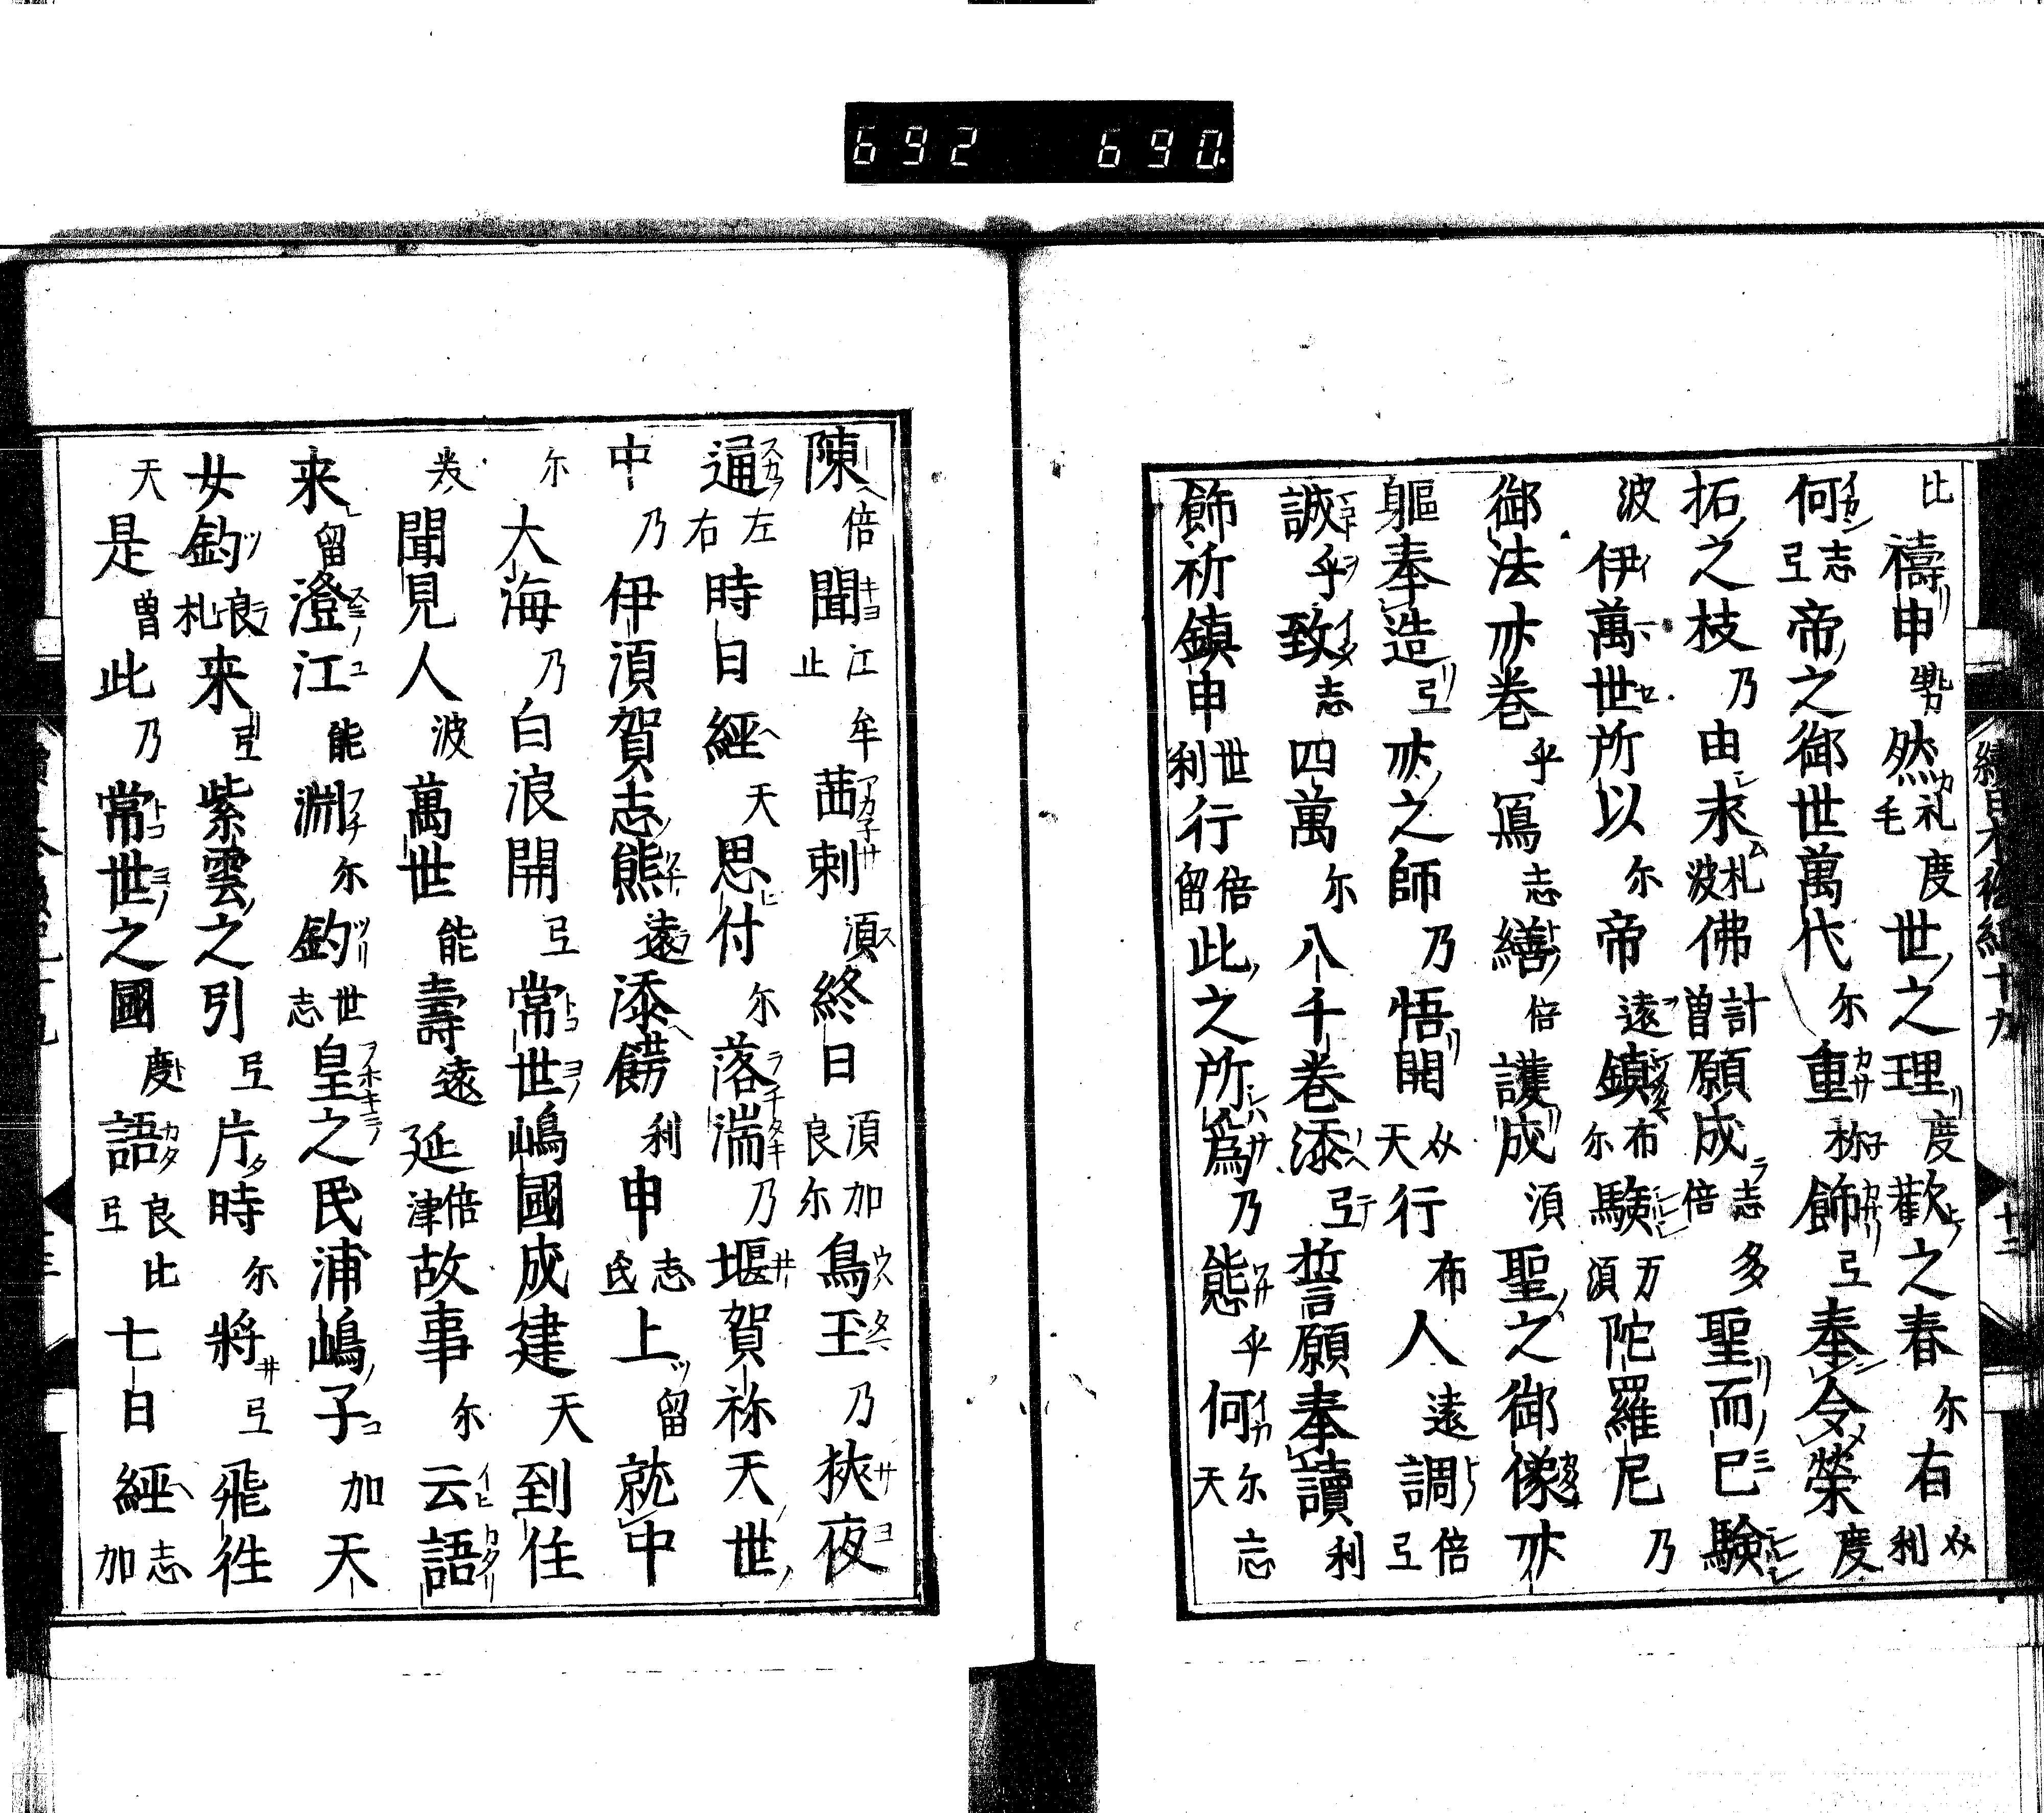 692 690.
續日本後紀十九 十二
比禱申然礼毛度世之理度歡之春尓有利
何志弖帝之御世萬代尓重祢飾弖奉令榮度
拓之枝乃由求礼波佛計曽願成志倍多聖而已験
波伊萬世所以尓帝遠鎮布尓験万湏陀羅尼乃
御法卌巻乎寫志繕倍護成湏聖之御像卌
軀奉造弖卌之師乃悟開天行布人遠調倍弖
誠乎致志四萬尓八千巻添弖誓願奉讀利
飾祈鎮申世利行倍留此之所為乃態乎何尓天忘
陳倍聞江止牟茜刺湏終日湏良加尓烏玉乃狹夜
通左右時日經天思付尓落湍乃堰賀祢天世
中乃伊湏賀志熊遠添餝利申志上留就中
尓大海乃白浪開弖常世嶋國成建天到住
聞見人波萬世能壽遠延倍津故事尓云語
来留澄江能淵尓釣世志皇之民浦嶋子加天
女釣良札来弖紫雲之引弖片時尓將弖飛徃
天是曽此乃常世之國度語良比弖七日經志加